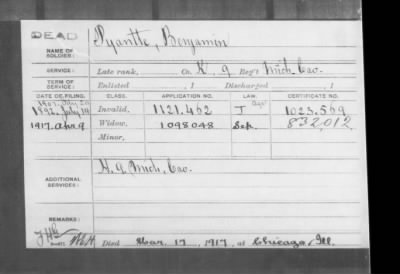 DEAD
NAME OF SOLDIER: Pyantte, Benjamin
SERVICE: Late rank, Co. K. 9 Reg't Mich. Cav.
TERM OF SERVICE: Enlisted , 1 Discharged , 1
DATE OF FILING. CLASS. APPLICATION NO. LAW. CERTIFICATE NO.
1892, July 14 Invalid, 1121.462 J 1023.569
1917. Apr 9 Widow, 1098048 Sep. 832,012
Minor,
ADDITIONAL SERVICES: H. 9 Mich. Cav.
REMARKS:
Died Mar. 17, 1917, at Chicago, Ill.